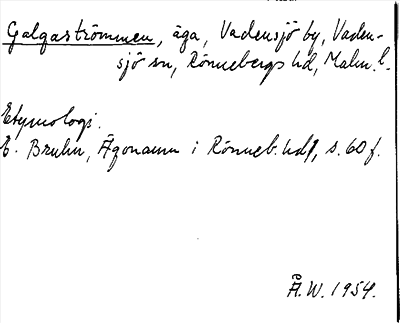 Galgaströmmen, äga, Vadensjö by, Vaden-
sjö sn, Rönnebergs hd, Malm. l.
Etymologi:
E. Bruhn, Ägonamn i Rönneb. hd, s. 60 f.
Å. W. 1954.